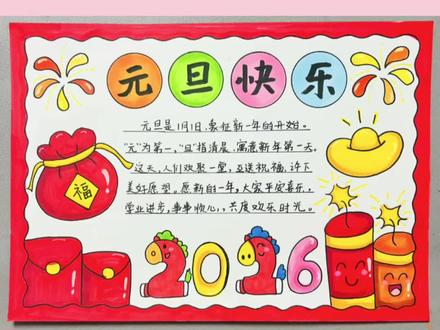 元旦快乐
元旦是1月1日,象征新一年的开始。
"元"为第一,"旦"指清晨,寓意新年第一天。
这天,人们欢聚一堂,互送祝福,许下
美好愿望。愿新的一年,大家平安喜乐,
学业进步,事事顺心,共度欢乐时光。
福
2026